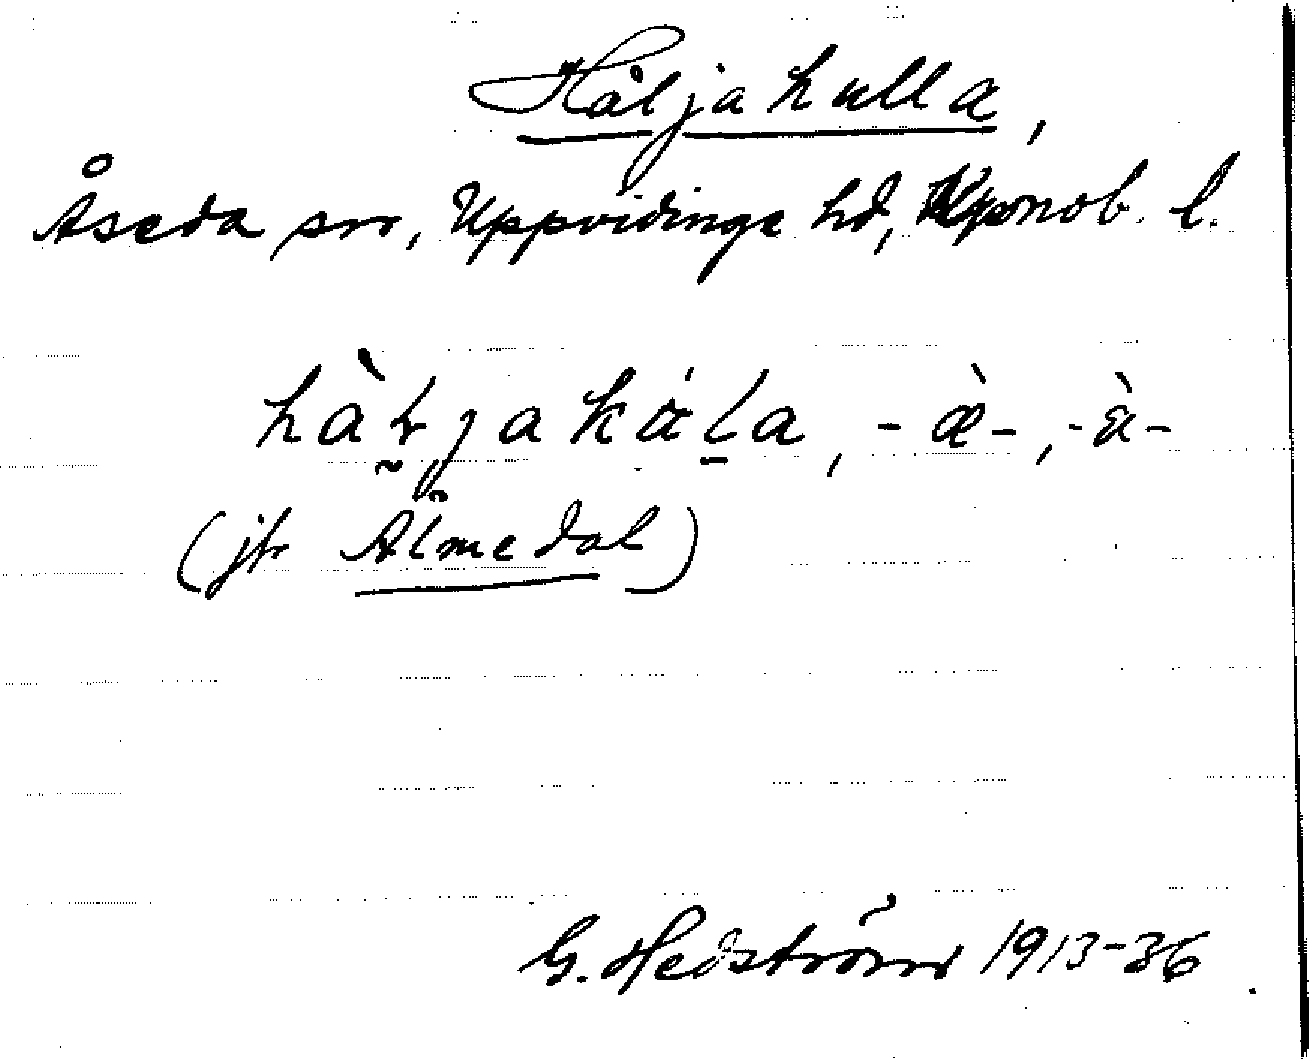 Håljahulla,
Åseda sn, Uppvidinge hd, Kronob. l.
hàljakála, -æ̀-, -à-
(jfr Älmedal)
G. Hedström 1913-36